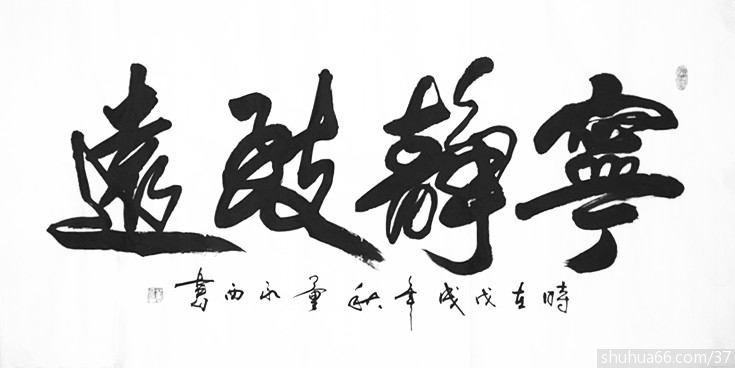 寧靜致遠
時在戊戌年秋
shuhua66.com/37